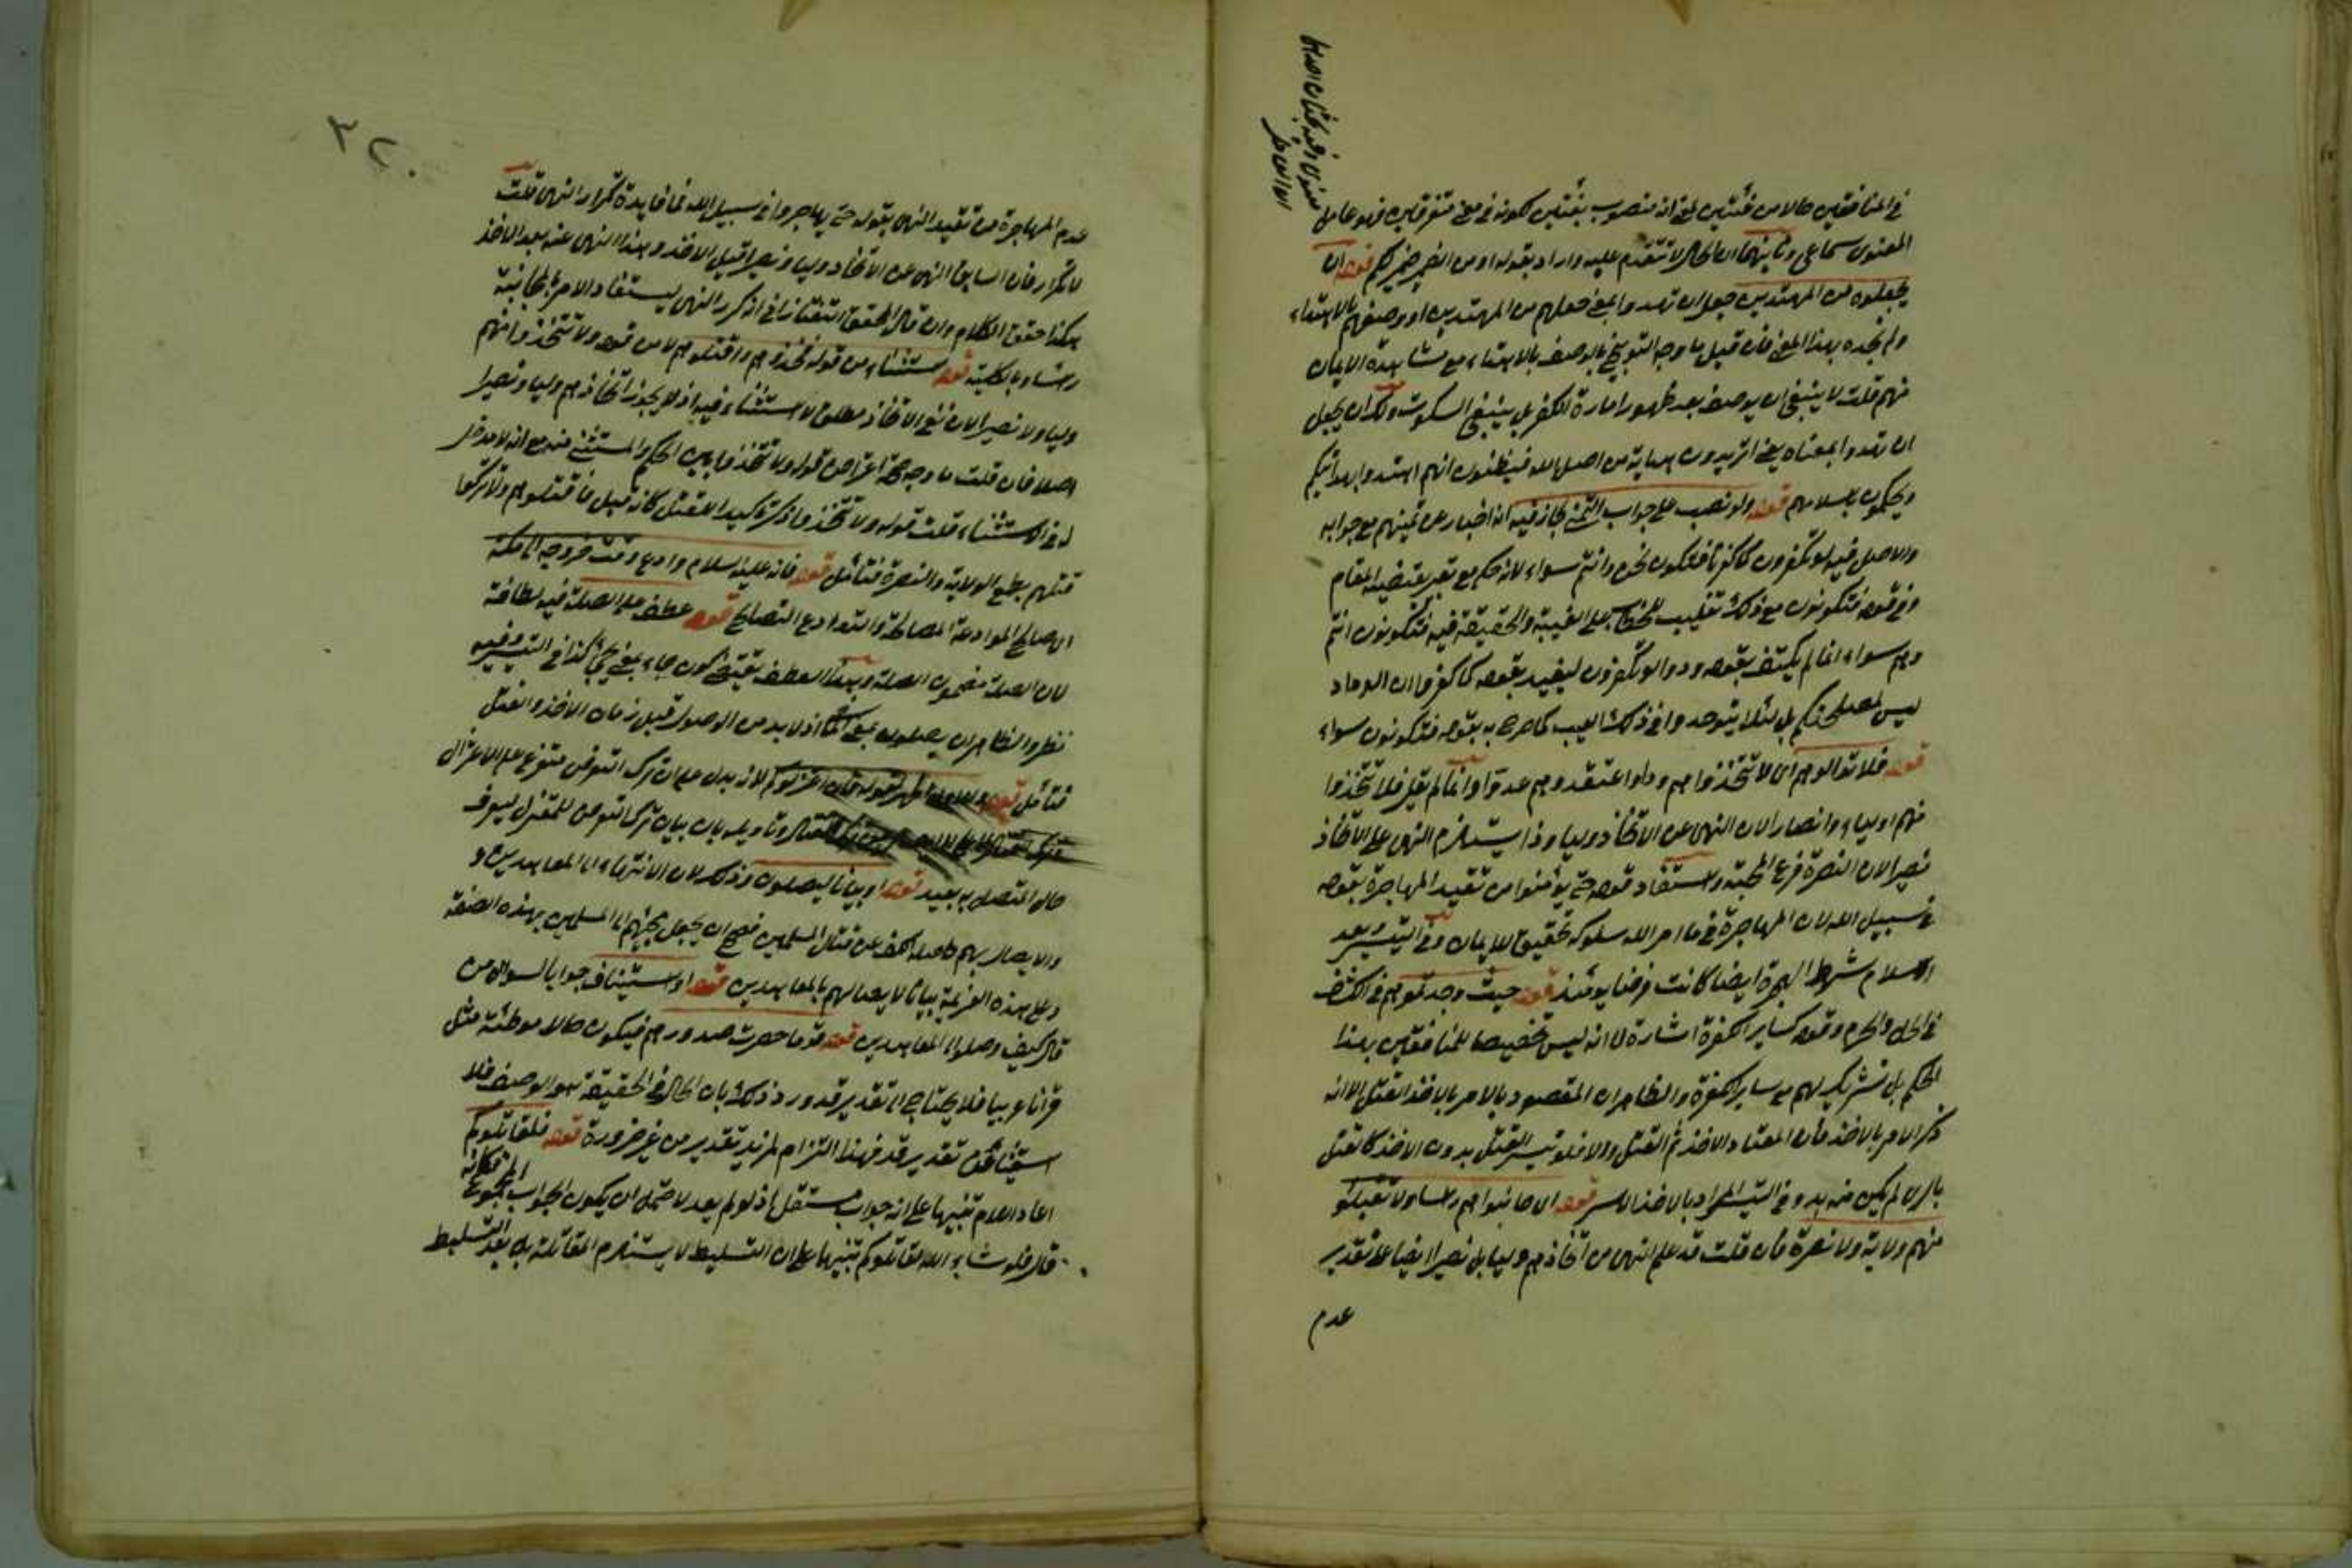 في المنافقين حالا من فئتين يعني انه منصوب بفئتين لكونه في معنى متفرقين فهو عامل
المعنوي سماعي وثانيهما ان الحال لا تتقدم عليه واراد بقوله او من الضمير ضمير لكم قوله ان
يجعلوه من المهتدين جعل ان تهدوا بمعنى جعلهم من المهتدين او وصفهم بالاهتداء
ولم نجده بهذا المعنى فان قيل ما وجه التوبيخ بالوصف بالاهتداء مع مشاهدة الايمان
منهم قلت لا ينبغي ان يوصف بعد ظهور امارة الكفر بل ينبغي السكوت ولك ان يجعل
ان تهدوا بمعناه يعني اتريدون هداية من اضل الله فيظنون انهم اهتدوا بهدايتكم
ويحكمون باسلامهم قوله ولو نصب على جواب التمني لجاز فيه انه اخبار عن تمنيهم مع جوابه
والاصل فيه لو تكفرون كما كفرنا فتكون نحن وانتم سواء لانه حكم مع تغير يقتضيه المقام
وفي قوله فتكونون مع ذلك تغليب الخطاب على الغيبة والحقيقة فيه فتكونون انتم
وهم سواء انما لم يكتف بقوله ودوا لو تكفرون ليفيد بقوله كما كفروا ان الوداد
ليس لمصلحتكم بل لئلا يتوحدوا في ذلك العيب كما صرح به بقوله فتكونون سواء
قوله فلا توالوهم اي لا تتخذوا هم ودا واعتقدوهم عدوا وانما لم يقل فلا تتخذوا
منهم اولياء وانصارا لان النهي عن الاتخاذ وليا وذا يستلزم النهي على الاتخاذ
نصيرا لان النصرة فرع المحبة واستفاد قوله حتى يؤمنوا من تقييد المهاجرة بقوله
في سبيل الله لان المهاجرة في ما امر الله سلوكه تحقيق للايمان وفي التيسير وبعد
الاسلام شرط الهجرة ايضا كانت فرضا يومئذ قوله حيث وجدتموهم في الكشف
في الحل والحرم وقوله كسائر الكفرة اشارة الى انه ليس تخصيصا للمنافقين بهذا
الحكم بل تشريك لهم مع سائر الكفرة والظاهر ان المقصود بالامر بالاخذ القتل الا انه
ذكر الامر بالاخذ لان المعتاد الاخذ ثم القتل والا فلو تيسر القتل بدون الاخذ كالقتل
بالرمي لم يكن منه بد وفي التيسير المراد بالاخذ الاسر قوله اي جانبوا هم راسا ولا تقبلوا
منهم ولاية ولا نصرة فان قلت قد علم النهي من اتخاذهم وليا بل نصيرا ايضا على تقدير
عدم
٣٢٠
عدم المهاجرة من تقييد النهي بقوله حتى يهاجروا في سبيل الله فما فايدة تكرار النهي قلت
لا تكرار فان السابق النهي عن الاتخاذ وليا ونصيرا قبل الاخذ وهذا النهي عنه بعد الاخذ
هكذا حقق الكلام وان قال المحقق التفتازاني انه كرر النهي ليستفاد الامر بالمجانبة
راسا وبالكلية قوله استثناء من قوله فخذوهم واقتلوهم لا من قوله ولا تتخذوا منهم
وليا ولا نصيرا لان نفي الاتخاذ مطلق لا استثناء فيه اذ لا يجوز اتخاذهم وليا ونصيرا
اصلا فان قلت ما وجه صحة اعتراض قوله ولا تتخذوا بين الحكم والمستثنى منه مع انه لا مدخل
له في الاستثناء قلت قوله ولا تتخذوا ذكر تاكيدا للقتل كانه قيل فاقتلوهم ولا تتركوا
قتلهم بطمع الولاية والنصرة فتامل قوله فانه عليه السلام وادع وقت خروجه الى مكة
اي صالح الموادعة المصالحة والتوادع التصالح قوله عطف على الصلة فيه لطافة
لان الصلة مضمون الصلة وهذا العطف يقتضي كون جاء بمعنى يجيء كذا في التيسير وفيه
نظر والظاهر ان يصلون بمعنى اذ لا بد من الوصول قبل زمان الاخذ والقتل
فتامل قوله والاول اظهر لقوله فان اعتزلوكم لانه يدل على ان ترك التعرض متفرع على الاعتزال
وتاويله بان بيان ترك التعرض للمعتزل ليعرف
حال المتصل به بعيد قوله او بيانا ليصلون وذلك لان الانتهاء الى المعاهدين و
والايصال بهم حاصله الكف عن قتال المسلمين فصح ان يجعل مجيئهم الى المسلمين بهذه الصفة
وعلى هذه العزيمة بيانا لاتصالهم بالمعاهدين قوله او استيناف جوابا لسوال من
قال كيف وصلوا الى المعاهدين قوله قوما حصرت صدورهم فيكون حالا موطئة مثل
قرانا عربيا فلا يحتاج الى تقدير قد ورد ذلك بان الحال في الحقيقة هو الوصف فلا
استغناء عن تقدير قد فهذا التزام لمزيد تقدير من غير ضرورة قوله فلقاتلوكم
اعاد اللام تنبيها على انه جواب مستقل اذ لو لم يعد لاحتمل ان يكون الجواب المجموع فكانه
قال فلو شاء الله لقاتلوكم تنبيها على ان التسليط لا يستلزم المقاتلة بل بعد التسليط